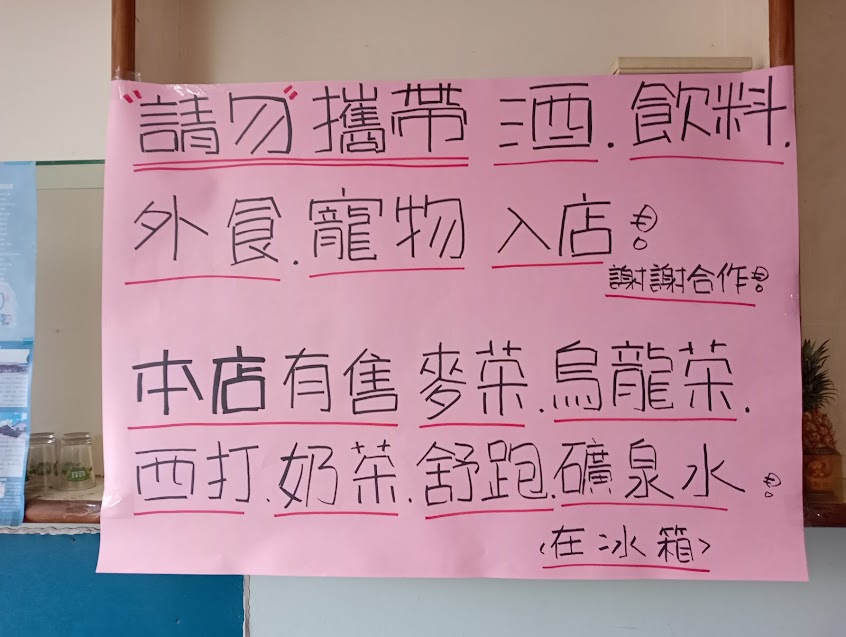 "請勿"攜帶 酒.飲料.
外食.寵物 入店!
謝謝合作!
本店有售 麥茶.烏龍茶.
西打.奶茶.舒跑.礦泉水.!
<在冰箱>